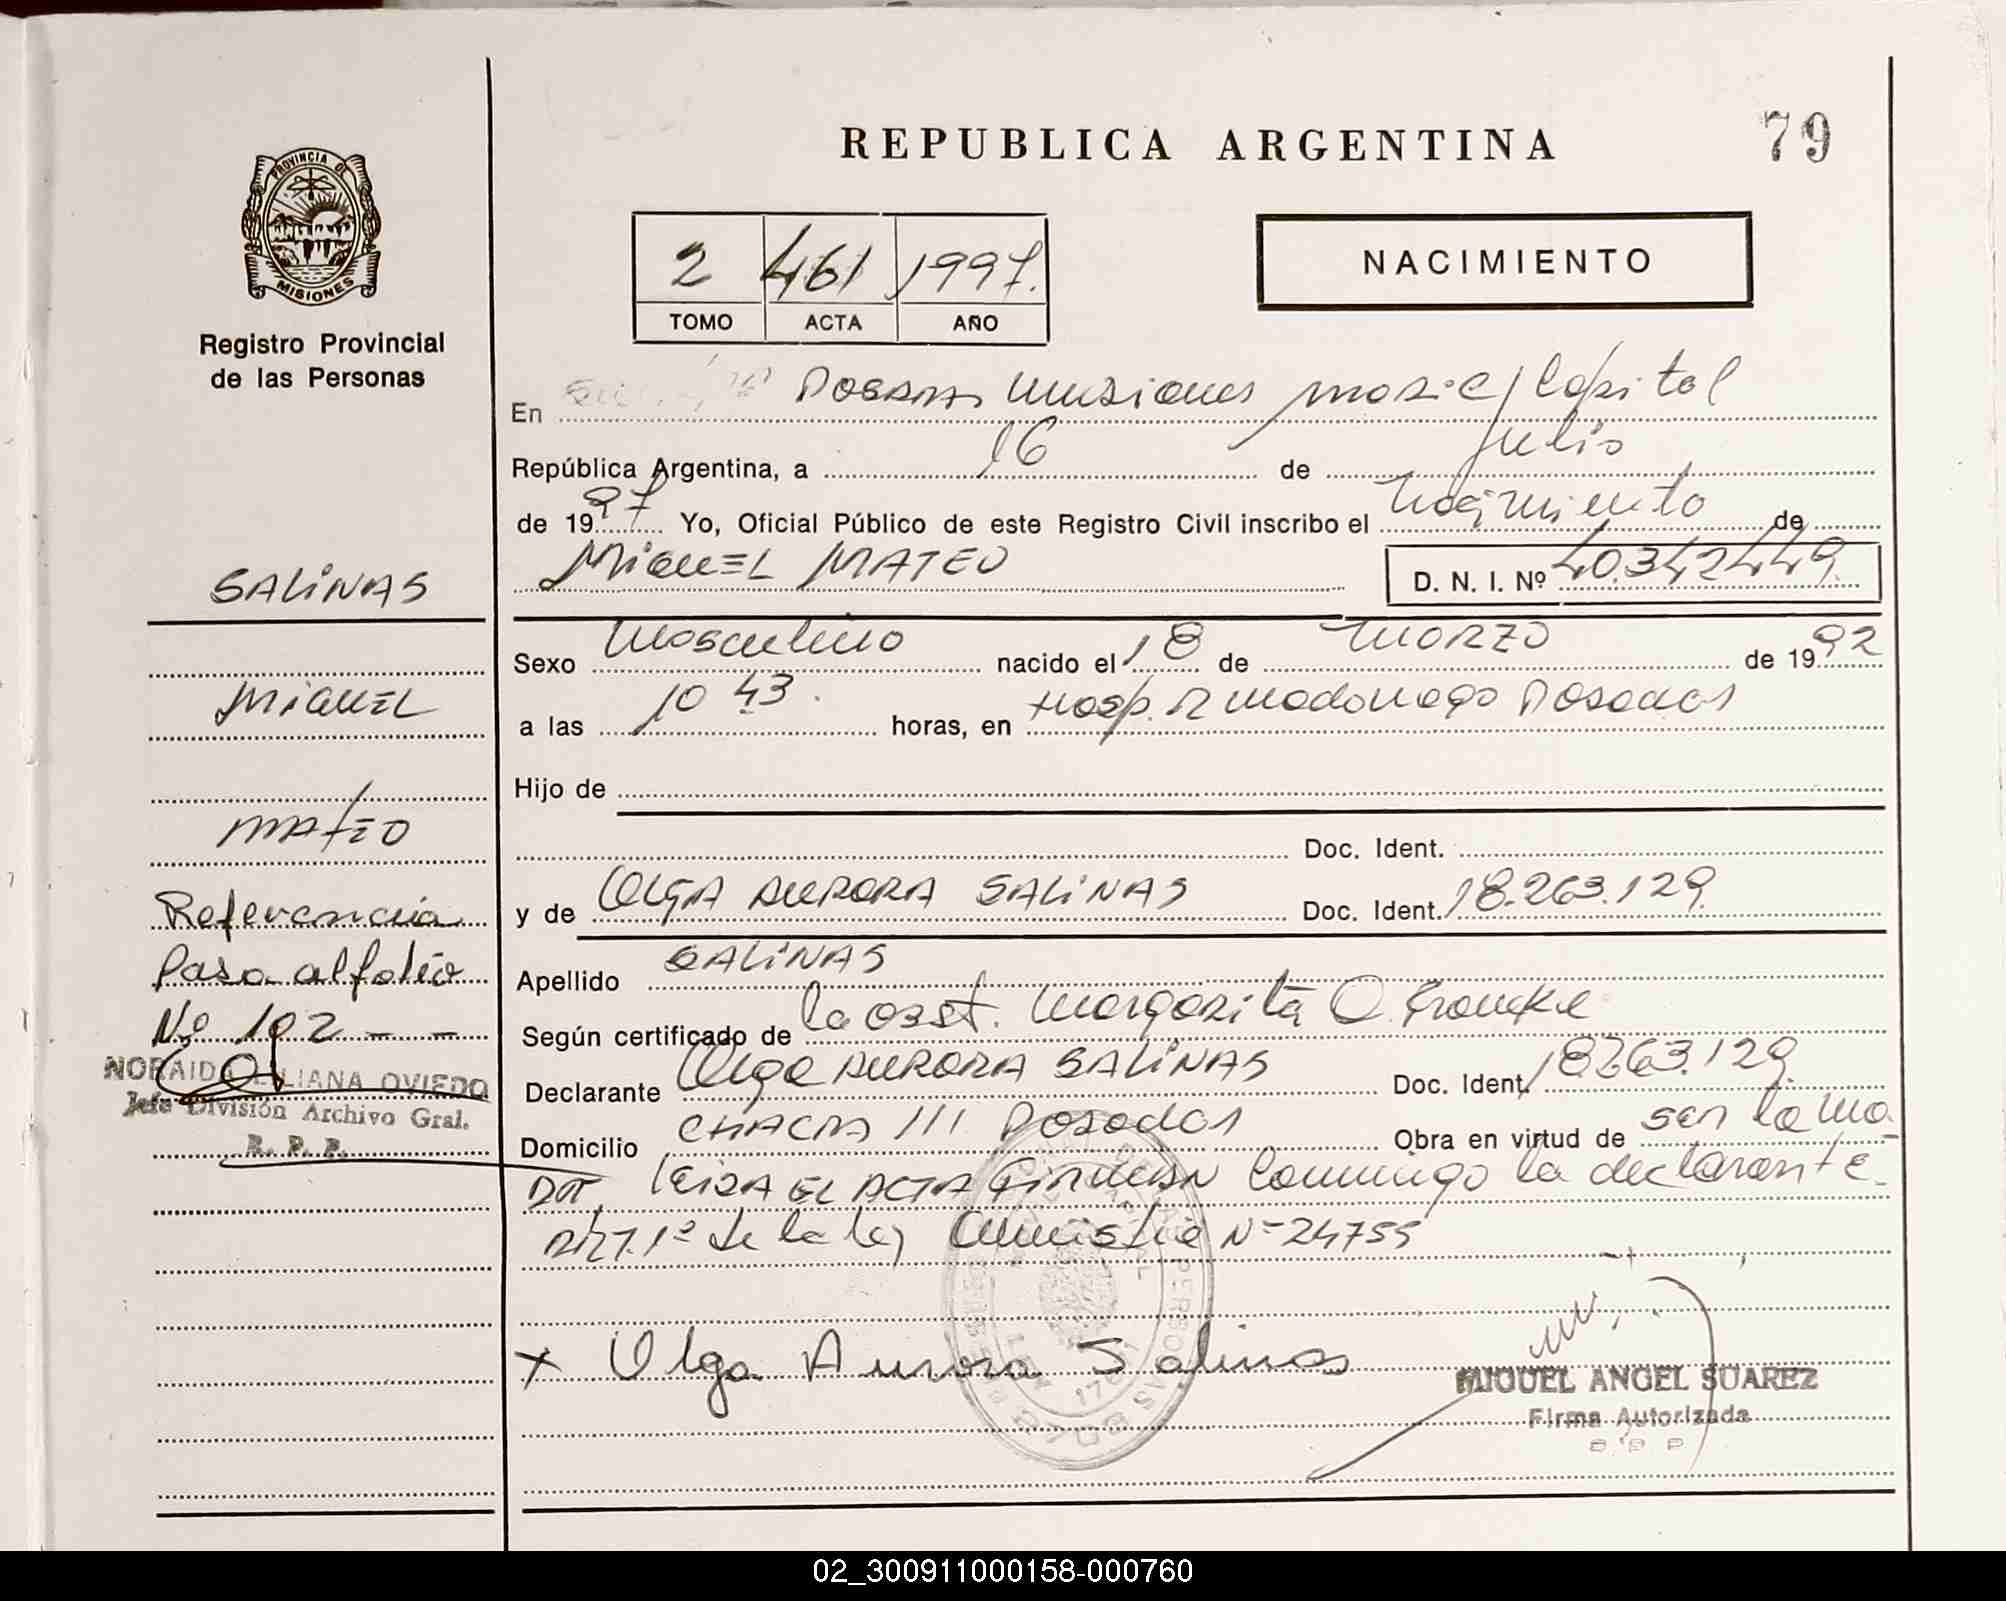 REPUBLICA ARGENTINA
79
PROVINCIA DE
MISIONES
Registro Provincial
de las Personas
2 461 1997.
TOMO ACTA AÑO
NACIMIENTO
En Posadas Misiones Capital
República Argentina, a 16 de Julio
de 1997 Yo, Oficial Público de este Registro Civil inscribo el Nacimiento de
MIGUEL MATEO
D. N. I. Nº 40.342449
Sexo Masculino nacido el 18 de MARZO de 1992
a las 10 43. horas, en Hosp. R Madariaga Posadas
Hijo de
Doc. Ident.
y de OLGA AURORA SALINAS Doc. Ident. 18.263.129
Apellido SALINAS
Según certificado de la obst. Margarita
Declarante Olga AURORA SALINAS Doc. Ident. 18263.129
Domicilio CHACRA III Posadas Obra en virtud de ser la ma
DRE. LEIDA EL ACTA FIRMAN Conmigo la declarante
Art. 1º de la ley Amnistia Nº 24755
x Olga Aurora Salinas
MIGUEL ANGEL SUAREZ
Firma Autorizada
SALINAS
MIGUEL
MATEO
Referencia
Pasa al folio
Nº 192 - -
NORAIDA LILIANA OVIEDO
Jefe División Archivo Gral.
R. P. P.
02_300911000158-000760